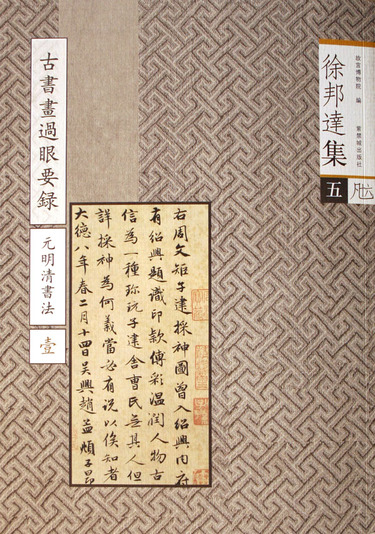 故宫博物院 编
紫禁城出版社
徐邦達集
五
古書畫過眼要録
元明清書法
壹
右周文矩子建採神圖曾入紹興内府
有紹興題識印款傅彩温潤人物古
信為一種珎玩子建舍曹氏無其人但
詳採神為何義當必有説以俟知者
大德八年春二月十四日吳興趙孟頫子昂